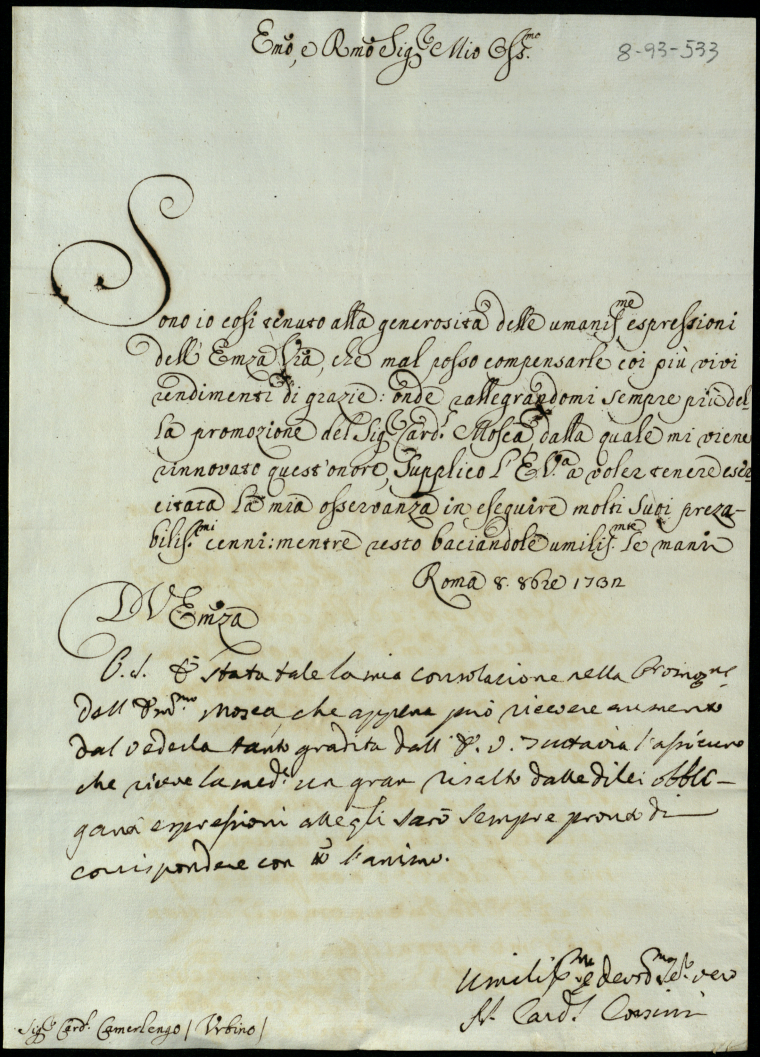 Emo, e Rmo Sig.r Mio Oss.mo
8-93-533
Sono io così tenuto alla generosità delle umaniss.me espressioni
dell' Emza Vra, che mal posso compensarle coi più vivi
rendimenti di grazie: onde rallegrandomi sempre più del-
la promozione del Sig.r Card.l Mosca, dalla quale mi viene
rinnovato quest'onore, Supplico l'E.V.a a voler tenere eser
citata la mia osservanza in eseguire molti Suoi preza-
biliss.mi cenni: mentre resto baciandole umiliss.mte le mani
Roma 8. 8bre 1732
D V Emza
P.S. È stata tale la mia consolazione nella Promoz.ne
dell' Em.mo Mosca, che appena può ricevere aumento
dal vederla tanto gradita dall' E. V. Tuttavia l'assicuro
che riceve la med.a un gran risalto dalle di lei obbli-
ganti espressioni alle q.li sarò sempre pronto di
corrispondere con tto l'animo.
Umiliss.mo e devot.mo Se.r vero
N. Card.l Corsini
Sig.r Card.l Camerlengo / Urbino /